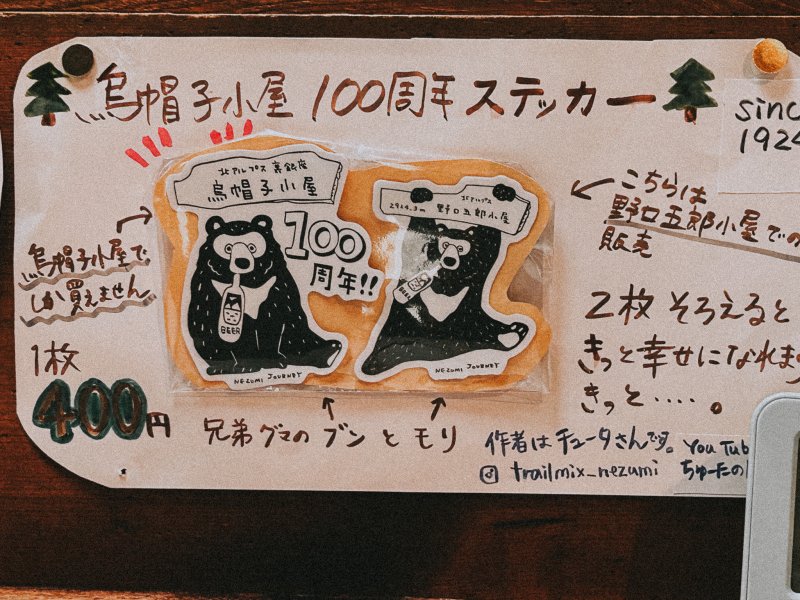 烏帽子小屋 100周年 ステッカー
since
1924
北アルプス 裏銀座
烏帽子小屋
100
周年!!
BEER
NEZUMI JOURNEY
北アルプス
2924.3m 野口五郎小屋
BEER
NEZUMI JOURNEY
烏帽子小屋で
しか買えません
1枚
400円
こちらは
野口五郎小屋での
販売
2枚 そろえると
きっと幸せになれま
きっと‥‥。
兄弟グマの ブン と モリ
作者は チュータさんです。
trailmix_nezumi
YouTub
ちゅーたの